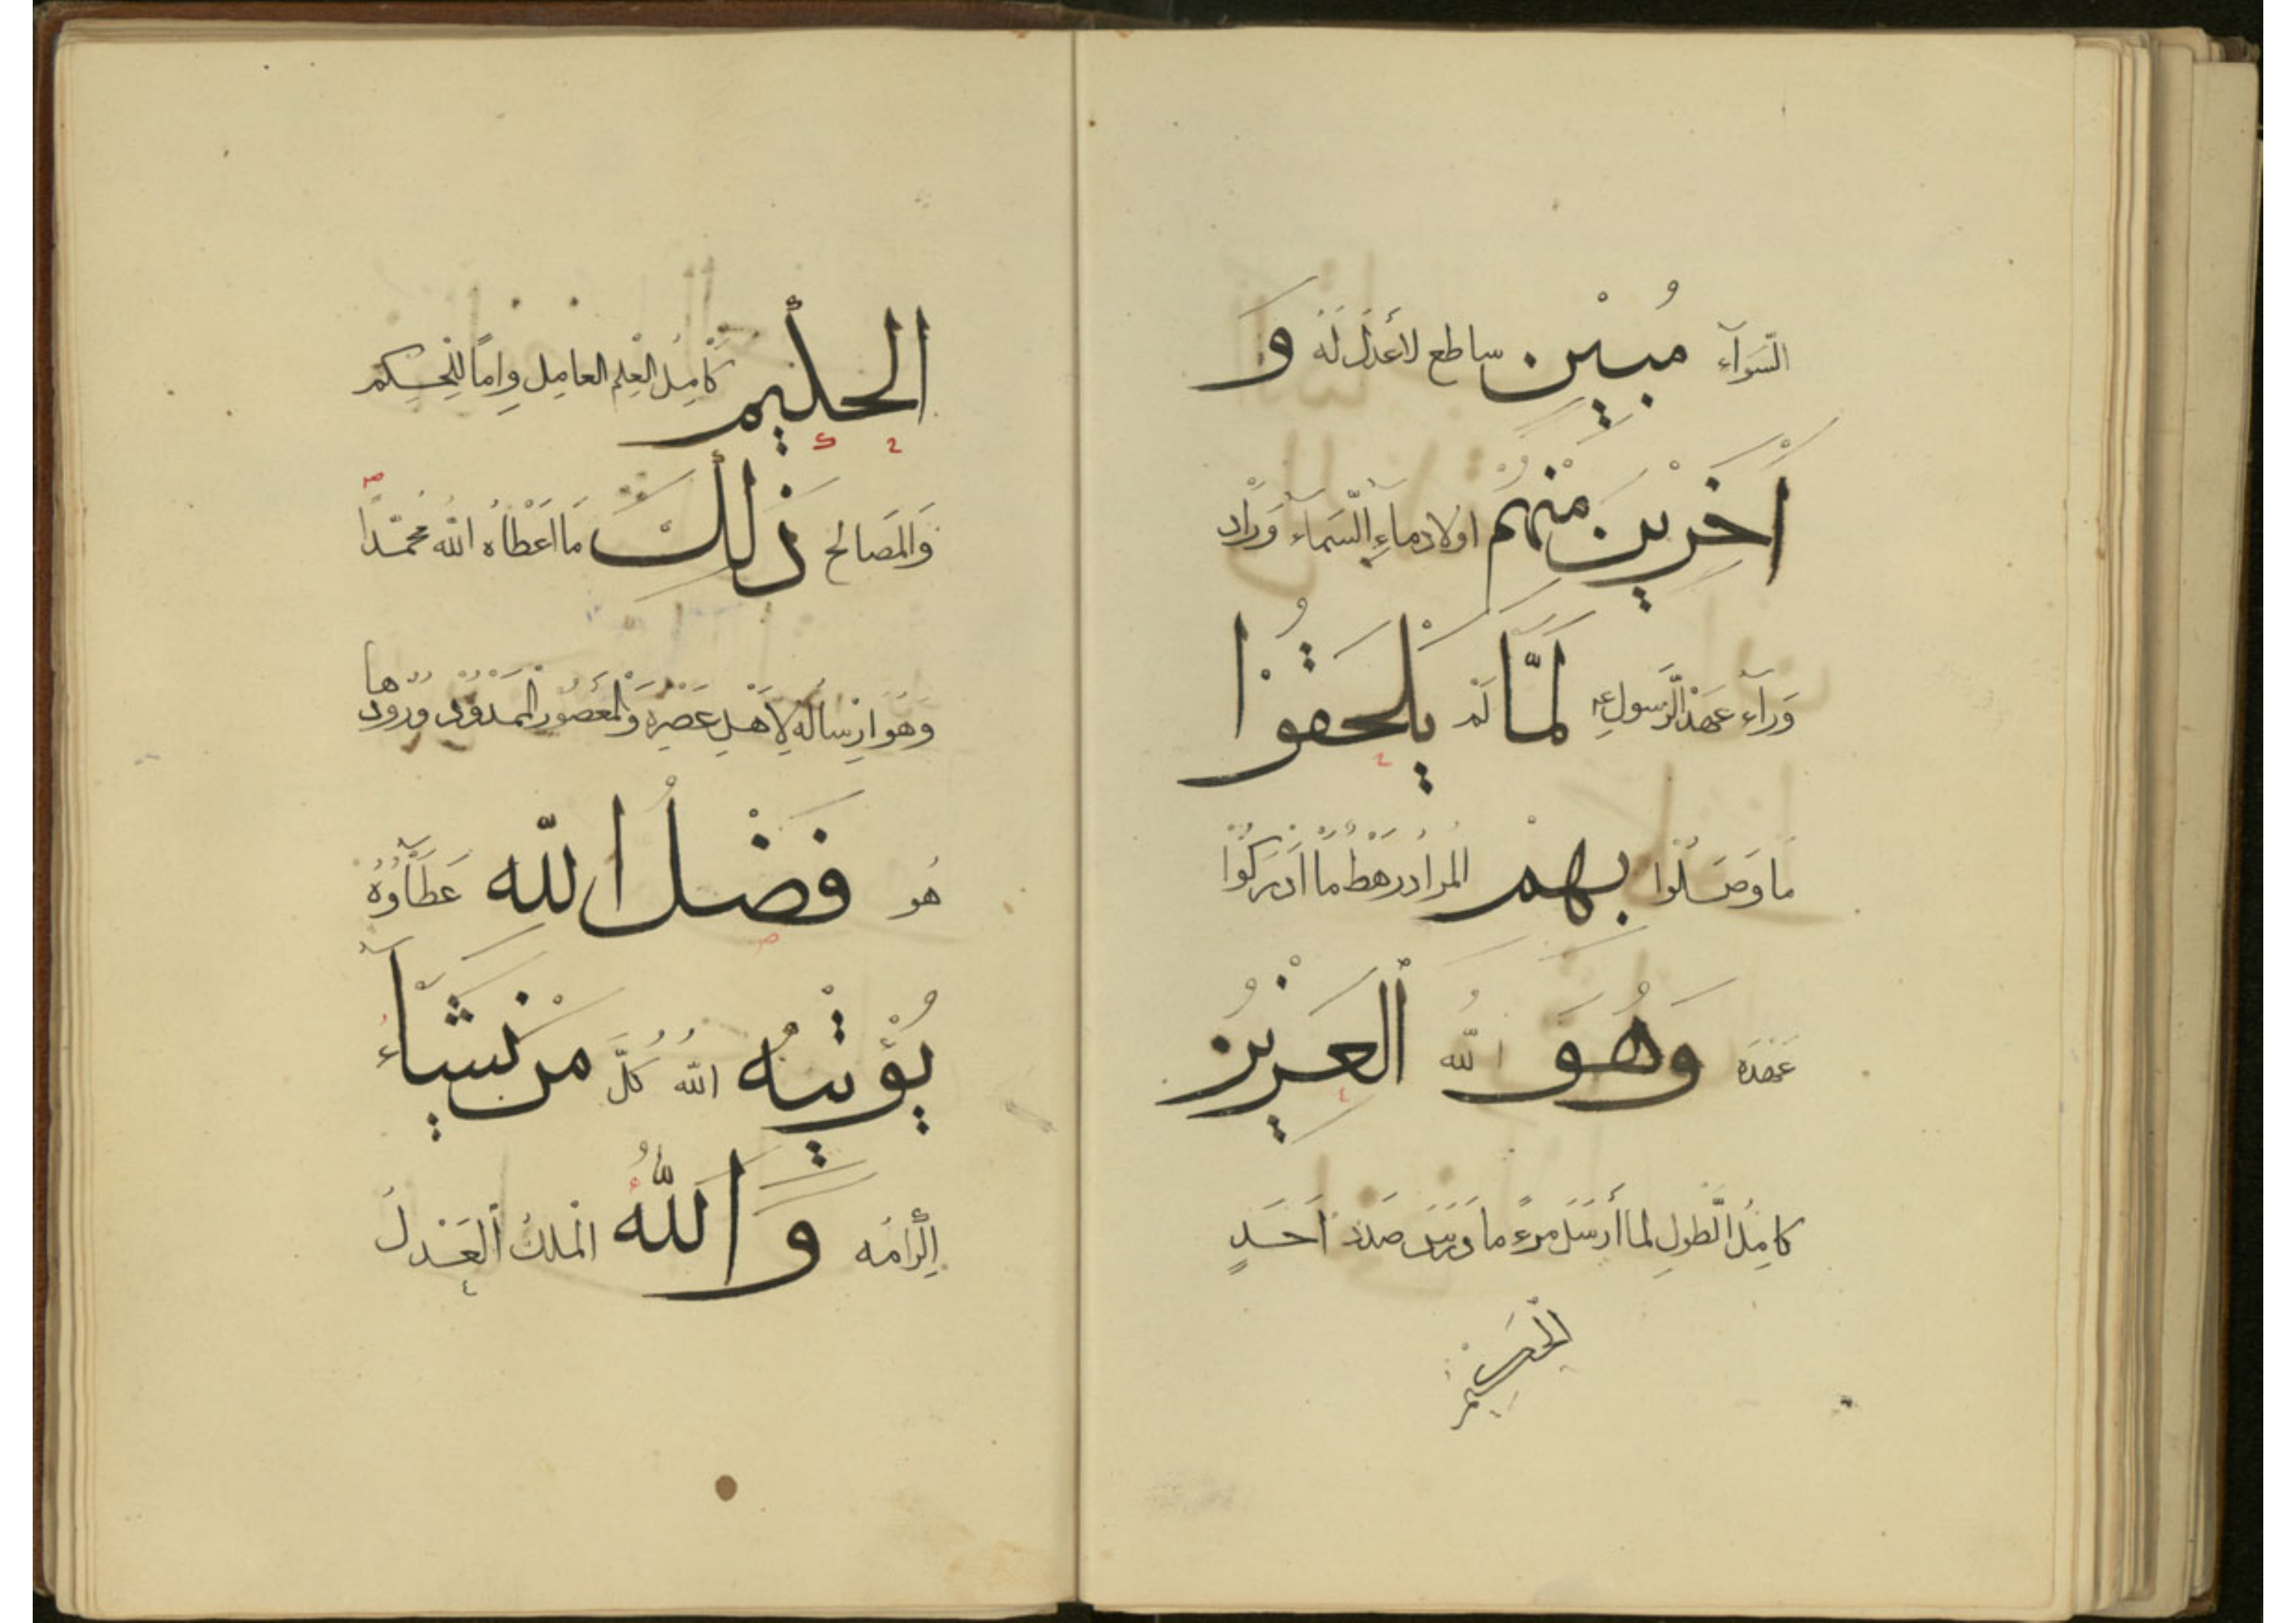 السَّوَآءِ مُبِيْنٍ ساطع لاعدل له وَ
آخَرِيْنَ مِنْهُمْ اولاد ماءِ السَّماء وَرَّاد
وَرآء عَهْد الرَّسولِ لَمَّا لَمْ يَلْحَقُوْا
ما وَصَلُوا بِهِمْ المراد رهط ما ادركوا
عَصْرَه وَهُوَ الله الْعَزِيْزُ
كامِلُ الطَّولِ لما أَرسَلَ مرءً ما دَرَسَ صَدَدَ أَحَدٍ
الحليم كامِلُ العِلْمِ العامِل وامّا للحِكم
وَالمَصالح ذٰلِكَ مَا اَعْطاهُ اللهُ مُحمَّدًا
وَهو ارساله لِاَهْلِ عَصْرِه وَالعصور المَمْدُوْدِ وُرُوْدُها
هُو فَضْلُ اللّه عَطآؤُهُ
يُؤْتِيْهِ اللهُ كُلَّ مَنْ يَّشَآءُ
اِكْرامَه وَاللّٰهُ المَلِكُ العَدْلُ